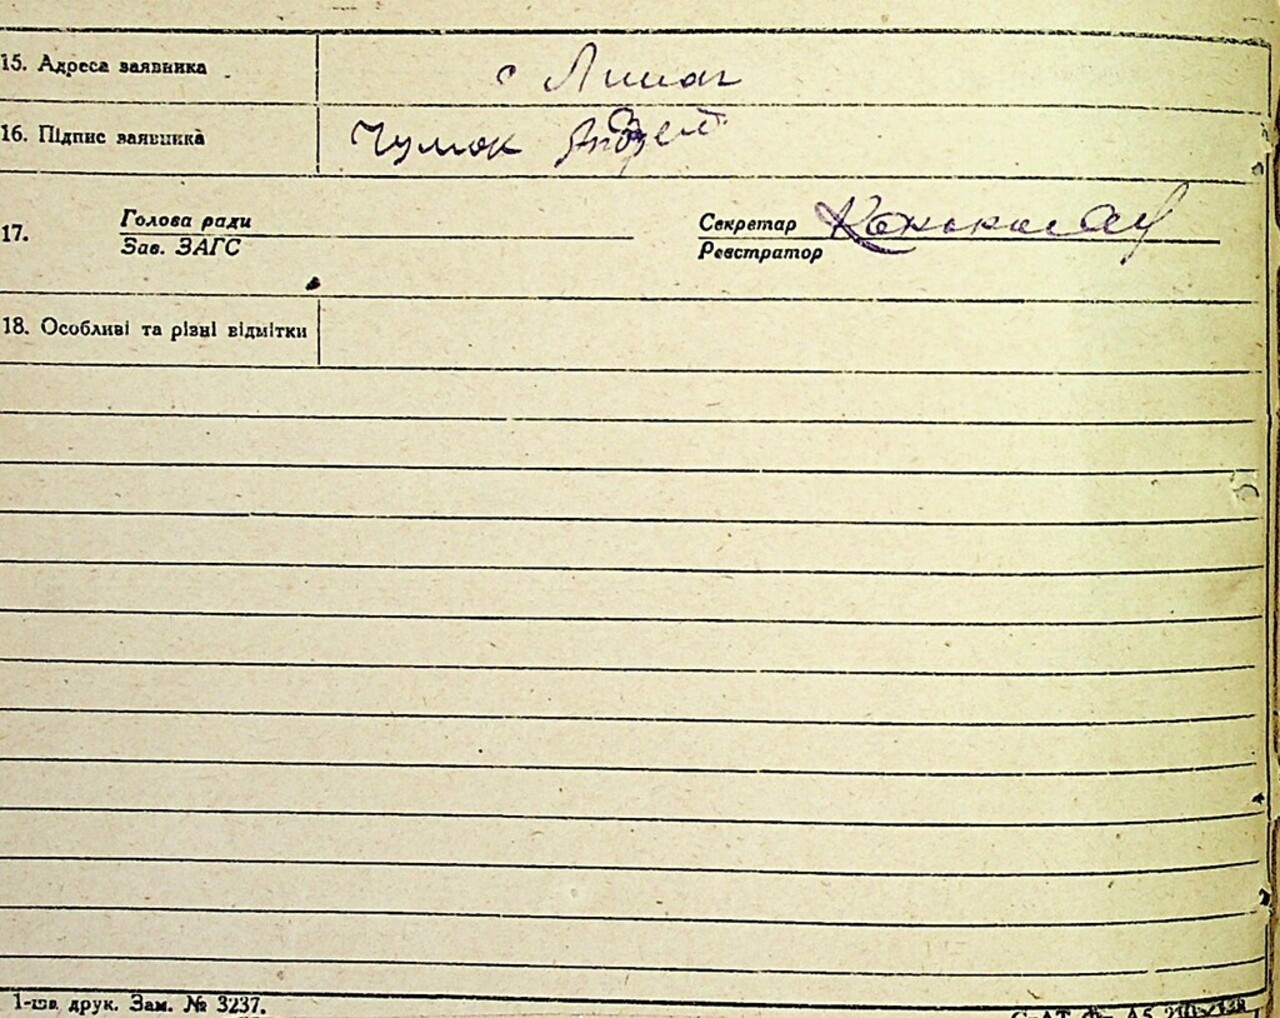 15. Адреса заявника с Лиман
16. Підпис заявника Чумак Андрей
Голова ради Секретар
17.
Зав. ЗАГС Реєстратор
18. Особливі та різні відмітки
1-ша друк. Зам. № 3237.